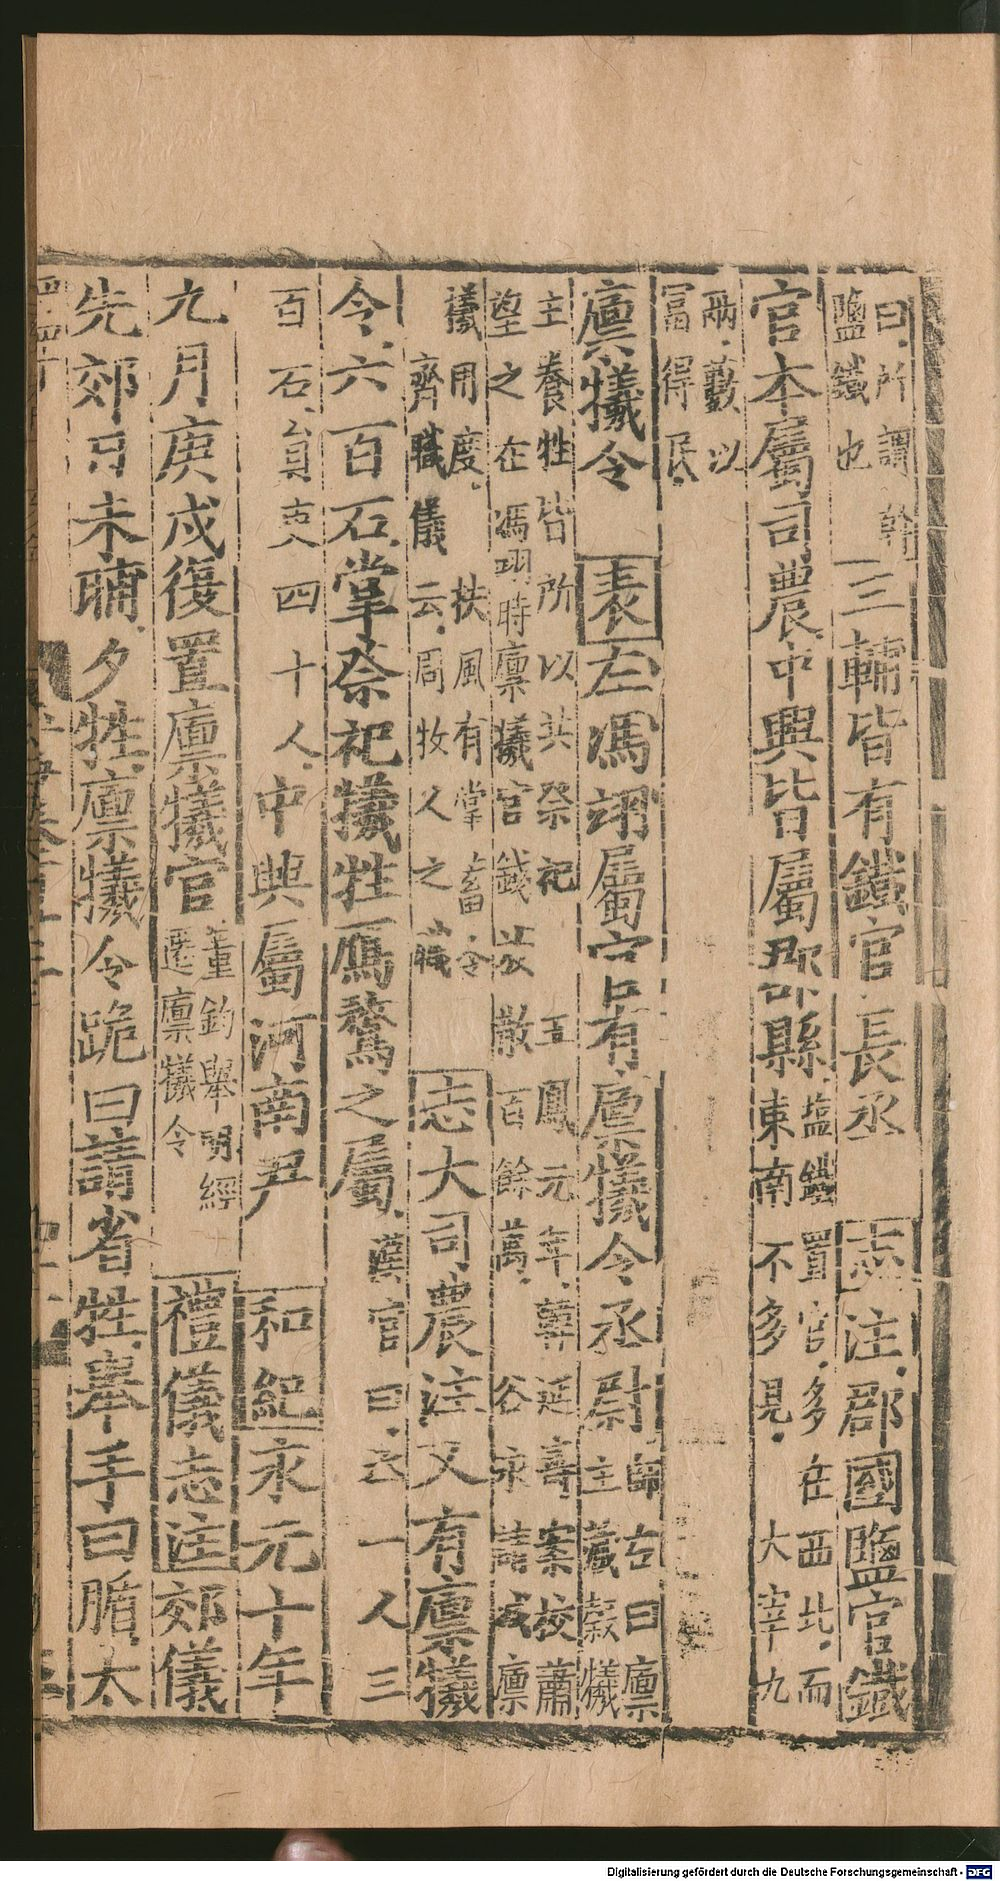 曰所謂幹
鹽鐵也
三輔皆有鐵官長丞 志注郡國鹽官鐵
官本屬司農中興皆屬郡縣
塩鐵置官多在西北而
東南不多見 大宰九
兩藪以
富得民
廩犧令 表左馮翊屬官有廩犧令丞尉
師古曰廩
主藏穀犧
主養牲皆所以共祭祀 五鳳元年蕭延壽案校蕭
望之在馮翊時廩犧官錢放散百餘萬 谷永請減廩
犧用度 扶風有掌畜令
齊職儀云周牧人之職
志大司農注又有廩犧
令六百石掌祭祀犧牲鴈鶩之屬
漢官曰丞一人三
百石員吏四十人
中興屬河南尹 和紀永元十年
九月庚戌復置廩犧官
董鈞舉明經
遷廩犧令
禮儀志注郊儀
先郊日未晡夕牲廩犧令跪曰請省牲舉手曰腯太
Digitalisierung gefördert durch die Deutsche Forschungsgemeinschaft - DFG